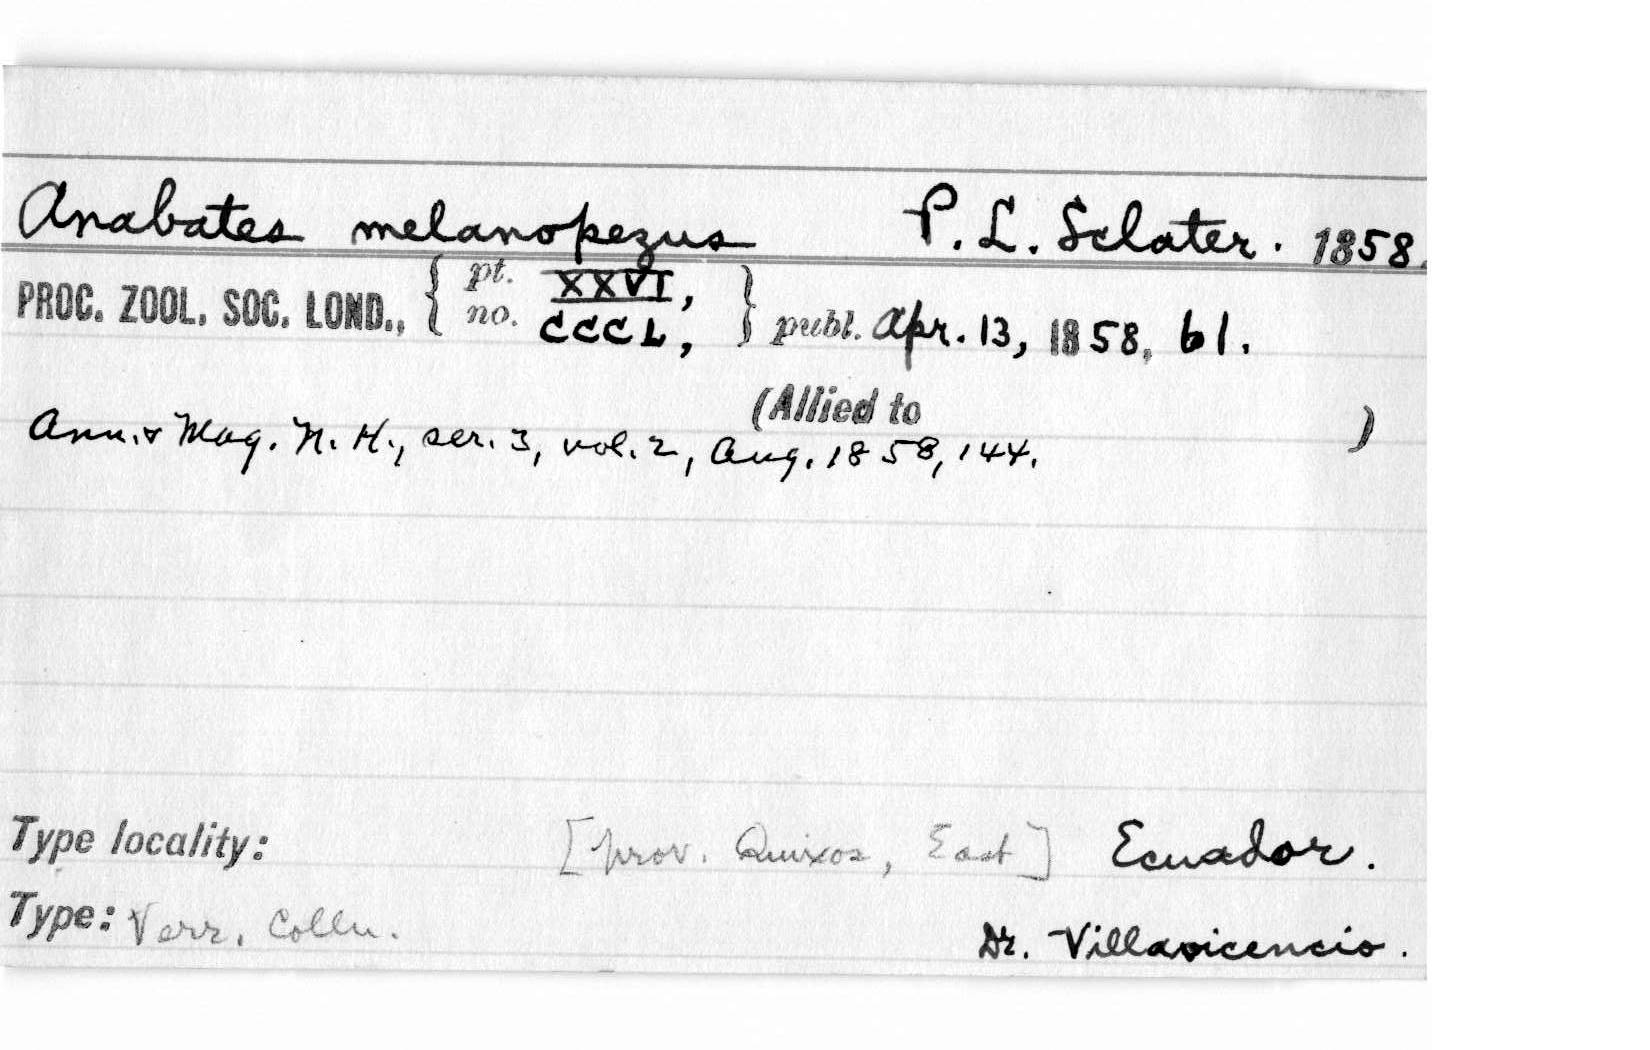 Anabates melanopezus P. L. Sclater. 1858.
PROC. ZOOL. SOC. LOND., { pt. XXVI, no. CCCL, } publ. Apr. 13, 1858, 61.
(Allied to )
Ann. & Mag. N. H., ser. 3, vol. 2, Aug. 1858, 144.
Type locality: [prov. Quixos, East] Ecuador.
Type: Verr. Colln. Dr. Villavicencio.